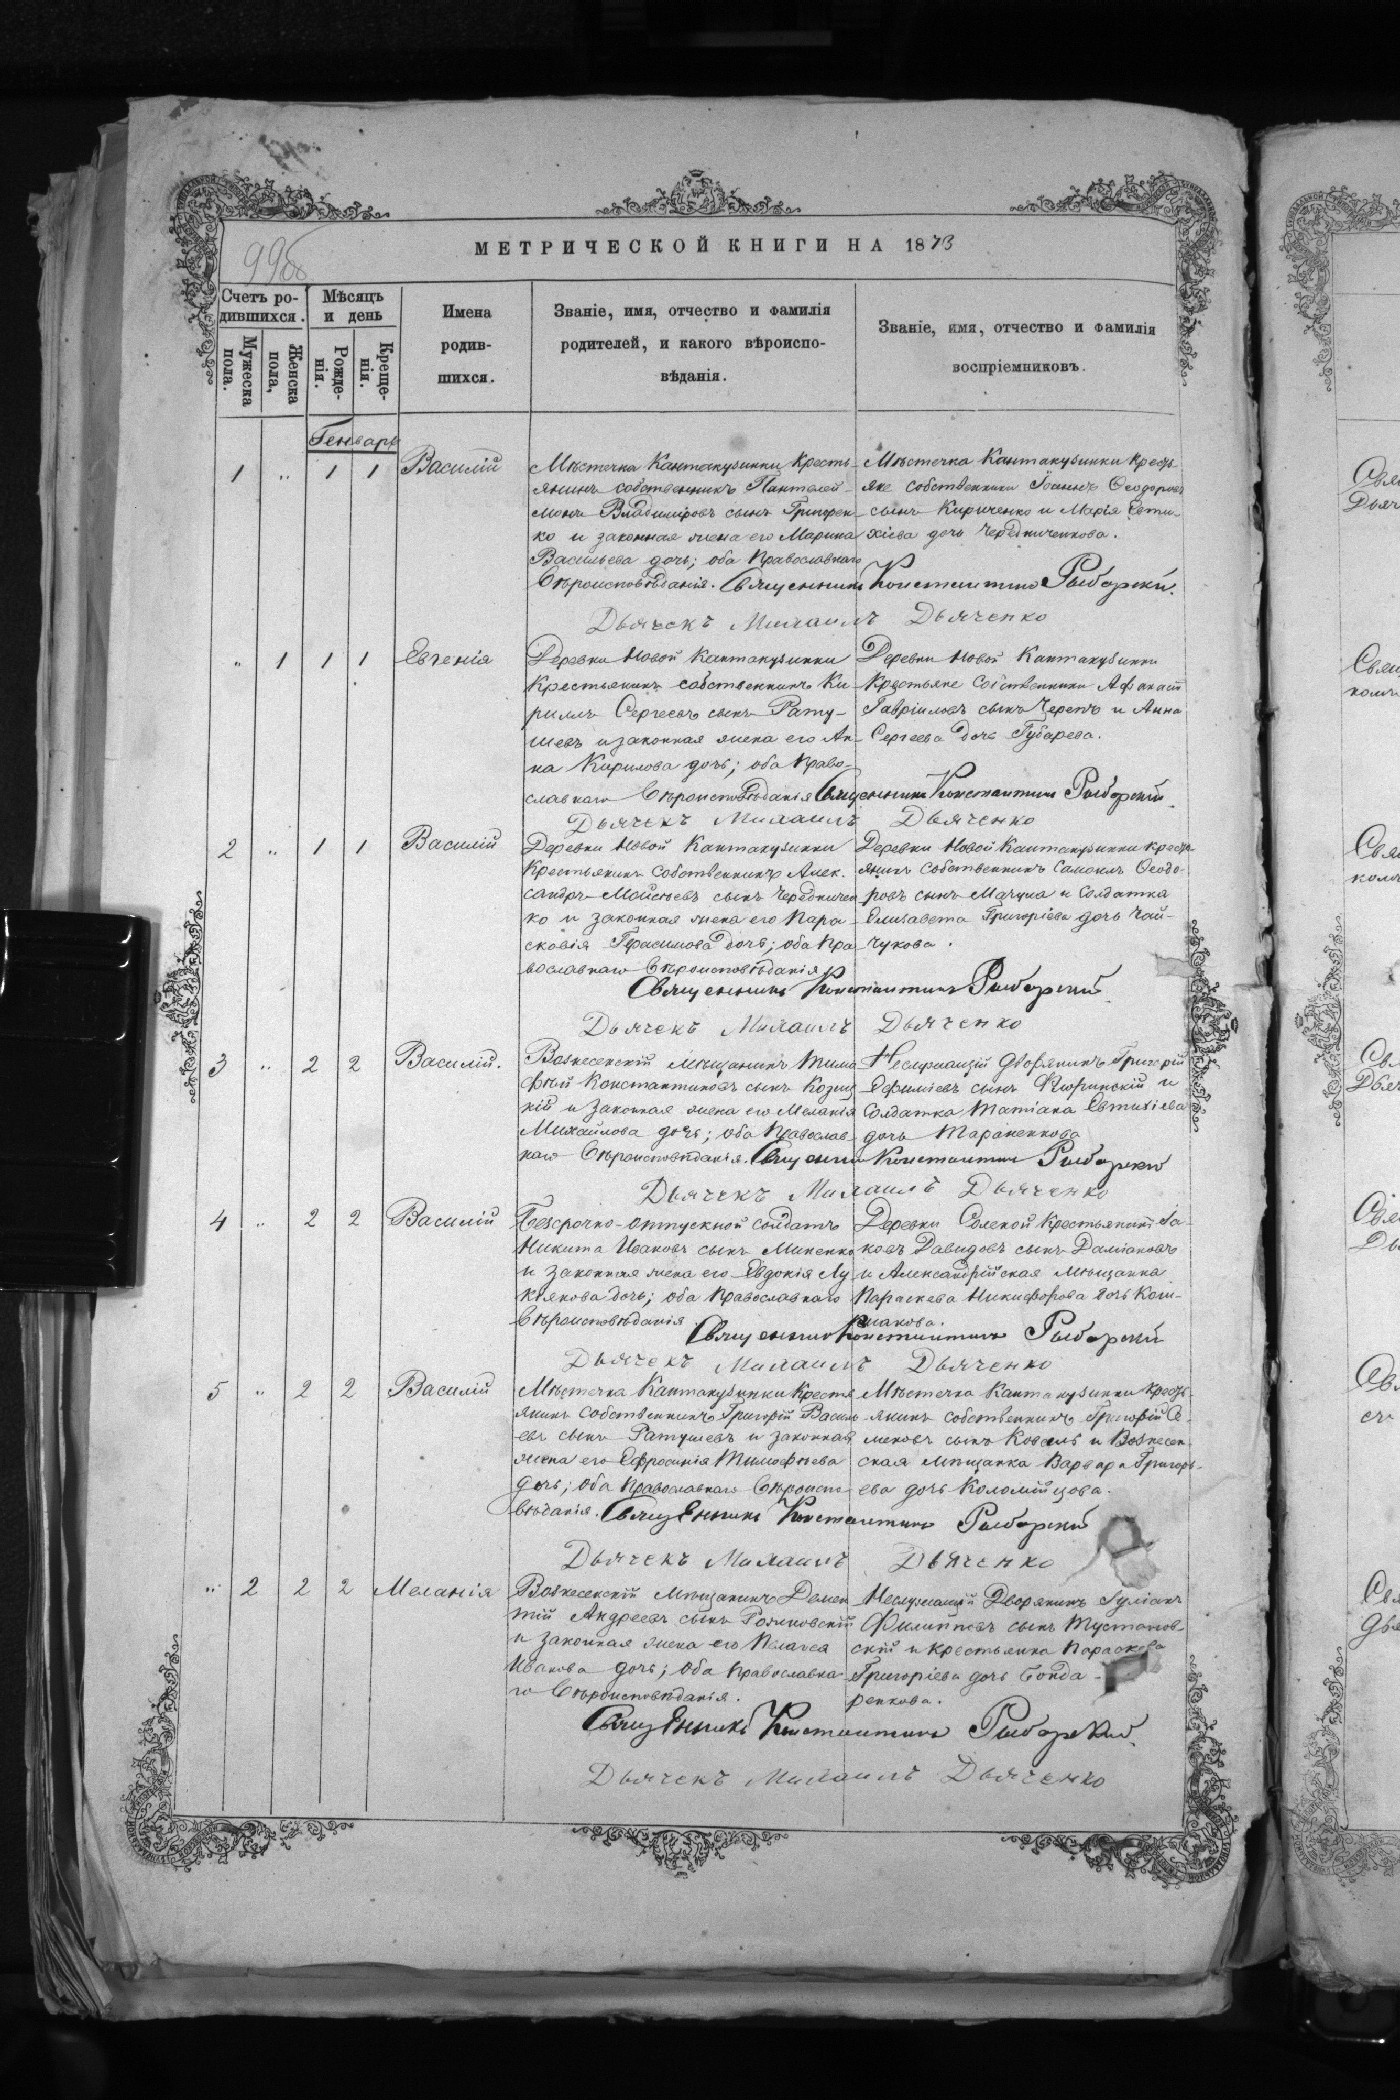 996
МЕТРИЧЕСКОЙ КНИГИ НА 1873
Счетъ ро-
дившихся.
Мужеска
пола.
Женска
пола,
Мѣсяцъ
и день
Рожде-
нія.
Креще-
нія.
Имена
родив-
шихся.
Званіе, имя, отчество и фамилія
родителей, и какого вѣроиспо-
вѣданія.
Званіе, имя, отчество и фамилія
воспріемниковъ.
Генварь
1 „ 1 1 Василій
Мѣстечка Кантакузинки Кресть-
янинъ собственникъ Пантелей-
монъ Владиміровъ сынъ Григорен-
ко и законная жена его Марина
Васильева дочь; оба Православнаго
Вѣроисповѣданія.
Мѣстечка Кантакузинки Кресть-
яне собственники Іоаннъ Ѳеодоровъ
сынъ Кириченко и Марія Евти-
хіева дочь Чередниченкова.
Священникъ Константинъ Рыбарскій.
Дьячекъ Михаилъ Дьяченко
„ 1 1 1 Евгенія
Деревни Новой Кантакузинки
Крестьянинъ собственникъ Ки-
рилъ Сергеевъ сынъ Рату-
шевъ и законная жена его Ан-
на Кирилова дочь; оба Право-
славнаго Вѣроисповѣданія
Деревни Новой Кантакузинки
Крестьяне Собственники Афанасій
Гавріиловъ сынъ Черепъ и Анна
Сергеева дочь Губарева.
Священникъ Константинъ Рыбарскій.
Дьячекъ Михаилъ Дьяченко
2 „ 1 1 Василій
Деревни Новой Кантакузинки
Крестьянинъ Собственникъ Алек-
сандръ Моисѣевъ сынъ Чередничен
ко и законная жена его Пара-
сковія Герасимова дочь; оба Пра
вославнаго Вѣроисповѣданія
Деревни Новой Кантакузинки кресть-
янинъ Собственникъ Самоилъ Ѳеодо-
ровъ сынъ Мацула и Солдатка
Елизавета Григоріева дочь Чай-
чукова.
Священникъ Константинъ Рыбарскій
Дьячекъ Михаилъ Дьяченко
3 „ 2 2 Василій.
Вознесенскій Мѣщанинъ Тимо
фѣй Константиновъ сынъ Козиц
кій и законная жена его Меланія
Михайлова дочь; оба Православ-
наго Вѣроисповѣданія.
Неслужащій дворянинъ Григорій
Ефиміевъ сынъ и
Солдатка Татіана Евтихіева
дочь Тараненкова
Священникъ Константинъ Рыбарскій
Дьячекъ Михаилъ Дьяченко
4 „ 2 2 Василій
Безсрочно-отпускной солдатъ
Никита Ивановъ сынъ Миненко
и законная жена его Евдокія Лу
кіянова дочь; оба Православнаго
Вѣроисповѣданія
Деревни Соленой Крестьянинъ Іа-
ковъ Давидовъ сынъ Даміановъ
и Александрійская Мѣщанка
Параскева Никифорова дочь Кол-
пакова.
Священникъ Константинъ Рыбарскій
Дьячекъ Михаилъ Дьяченко
5 „ 2 2 Василій
Мѣстечка Кантакузинки Кресть
янинъ Собственникъ Григорій Василь
евъ сынъ Ратушевъ и законная
жена его Ефросинія Тимофѣева
дочь; оба Православнаго Вѣроиспо
вѣданія.
Мѣстечка Кантакузинки кресть-
янинъ собственникъ Григорій Се-
меновъ сынъ Коваль и Вознесен-
ская Мѣщанка Варвара Григорь-
ева дочь Коломійцова.
Священникъ Константинъ Рыбарскій
Дьячекъ Михаилъ Дьяченко
„ 2 2 2 Меланія
Вознесенскій Мѣщанинъ Демен
тій Андреевъ сынъ Рожновскій
и законная жена его Пелагея
Иванова дочь; оба Православна-
го Вѣроисповѣданія.
Неслужащій Дворянинъ Іуліанъ
Филипповъ сынъ Тустанов-
скій и Крестьянка Параскева
Григоріева дочь Бонда-
ренкова.
Священникъ Константинъ Рыбарскій.
Дьячекъ Михаилъ Дьяченко